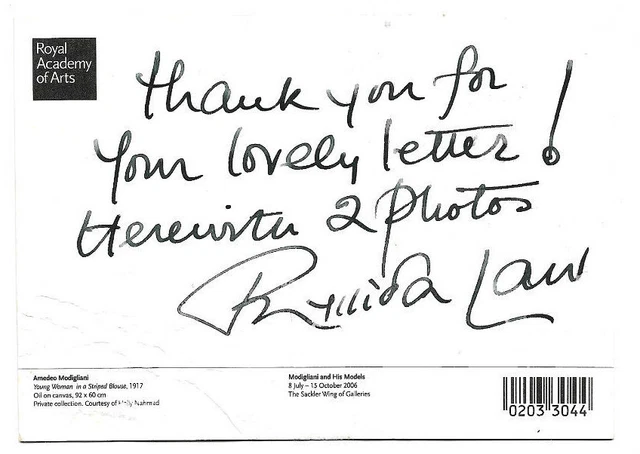 Royal
Academy
of Arts
thank you for
your lovely letter!
Herewith 2 photos
Phyllida Law
Amedeo Modigliani
Young Woman in a Striped Blouse, 1917
Oil on canvas, 92 x 60 cm
Private collection. Courtesy of Helly Nahmad
Modigliani and His Models
8 July – 15 October 2006
The Sackler Wing of Galleries
0203 3044